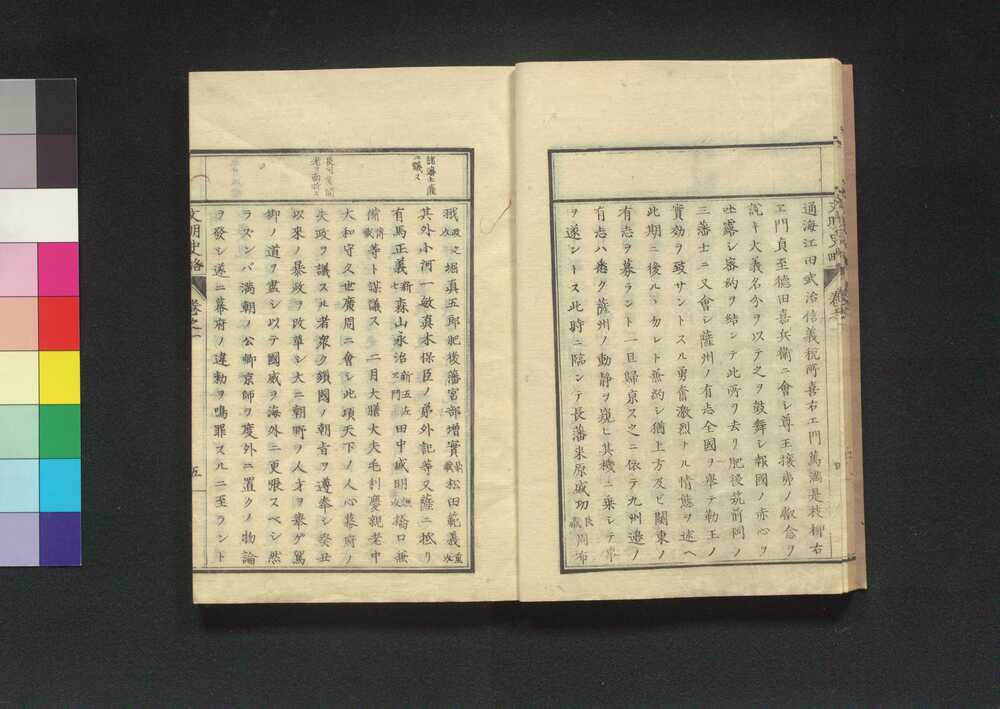 通海江田武治信義税所喜右エ門篤滿是枝柳右
エ門貞至德田嘉兵衛ニ會シ尊王攘夷ノ叡念ヲ
說キ大義名分ヲ以テ之ヲ鼓舞シ報國ノ赤心ヲ
吐露シ密約ヲ結ンテ此所ヲ去リ肥後筑前同ノ
三藩士ニ又會シ薩州ノ有志全國ヲ擧テ勤王ノ
實効ヲ致サントスル勇奮激烈ナル情態ヲ述ヘ
此期ニ後ルヽ勿レト兼約シ猶上方及ヒ關東ノ
有志ヲ募ラント一旦歸京ス之ニ依テ九州邊ノ
有志ハ悉ク薩州ノ動靜ヲ窺ヒ其機ニ乘シテ事
ヲ遂ントス此時ニ臨ンテ長藩米原威功 良藏 周布
諸藩士薩
ニ議ス
政之 堀眞五郎肥後藩宮部增實 松田範義 重
其外小河一敏眞木保臣ノ弟外記等又薩ニ抵リ
有馬正義 新七 森山永治 新五左エ門 田中威明 橋口兼
備 等ト謀議ス 二月大膳大夫毛利慶親老中
大和守久世廣周ニ會シ此項天下ノ人心幕府ノ
失政ヲ議スル者衆ク鎖國ノ朝旨ヲ遵奉シ癸丑
以來ノ暴政ヲ改革シ大ニ朝野ヲ人才ヲ擧ゲ篤
御ノ道ヲ盡シ以テ國威ヲ海外ニ更張スベシ然
ラズンバ滿朝ノ公卿京師ヲ度外ニ置クノ物論
ヲ發シ遂ニ幕府ノ違勅ヲ鳴罪スルニ至ラント
文明史略
卷之一
五